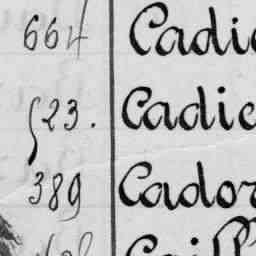 664 Cadie
523. Cadie
389 Cador